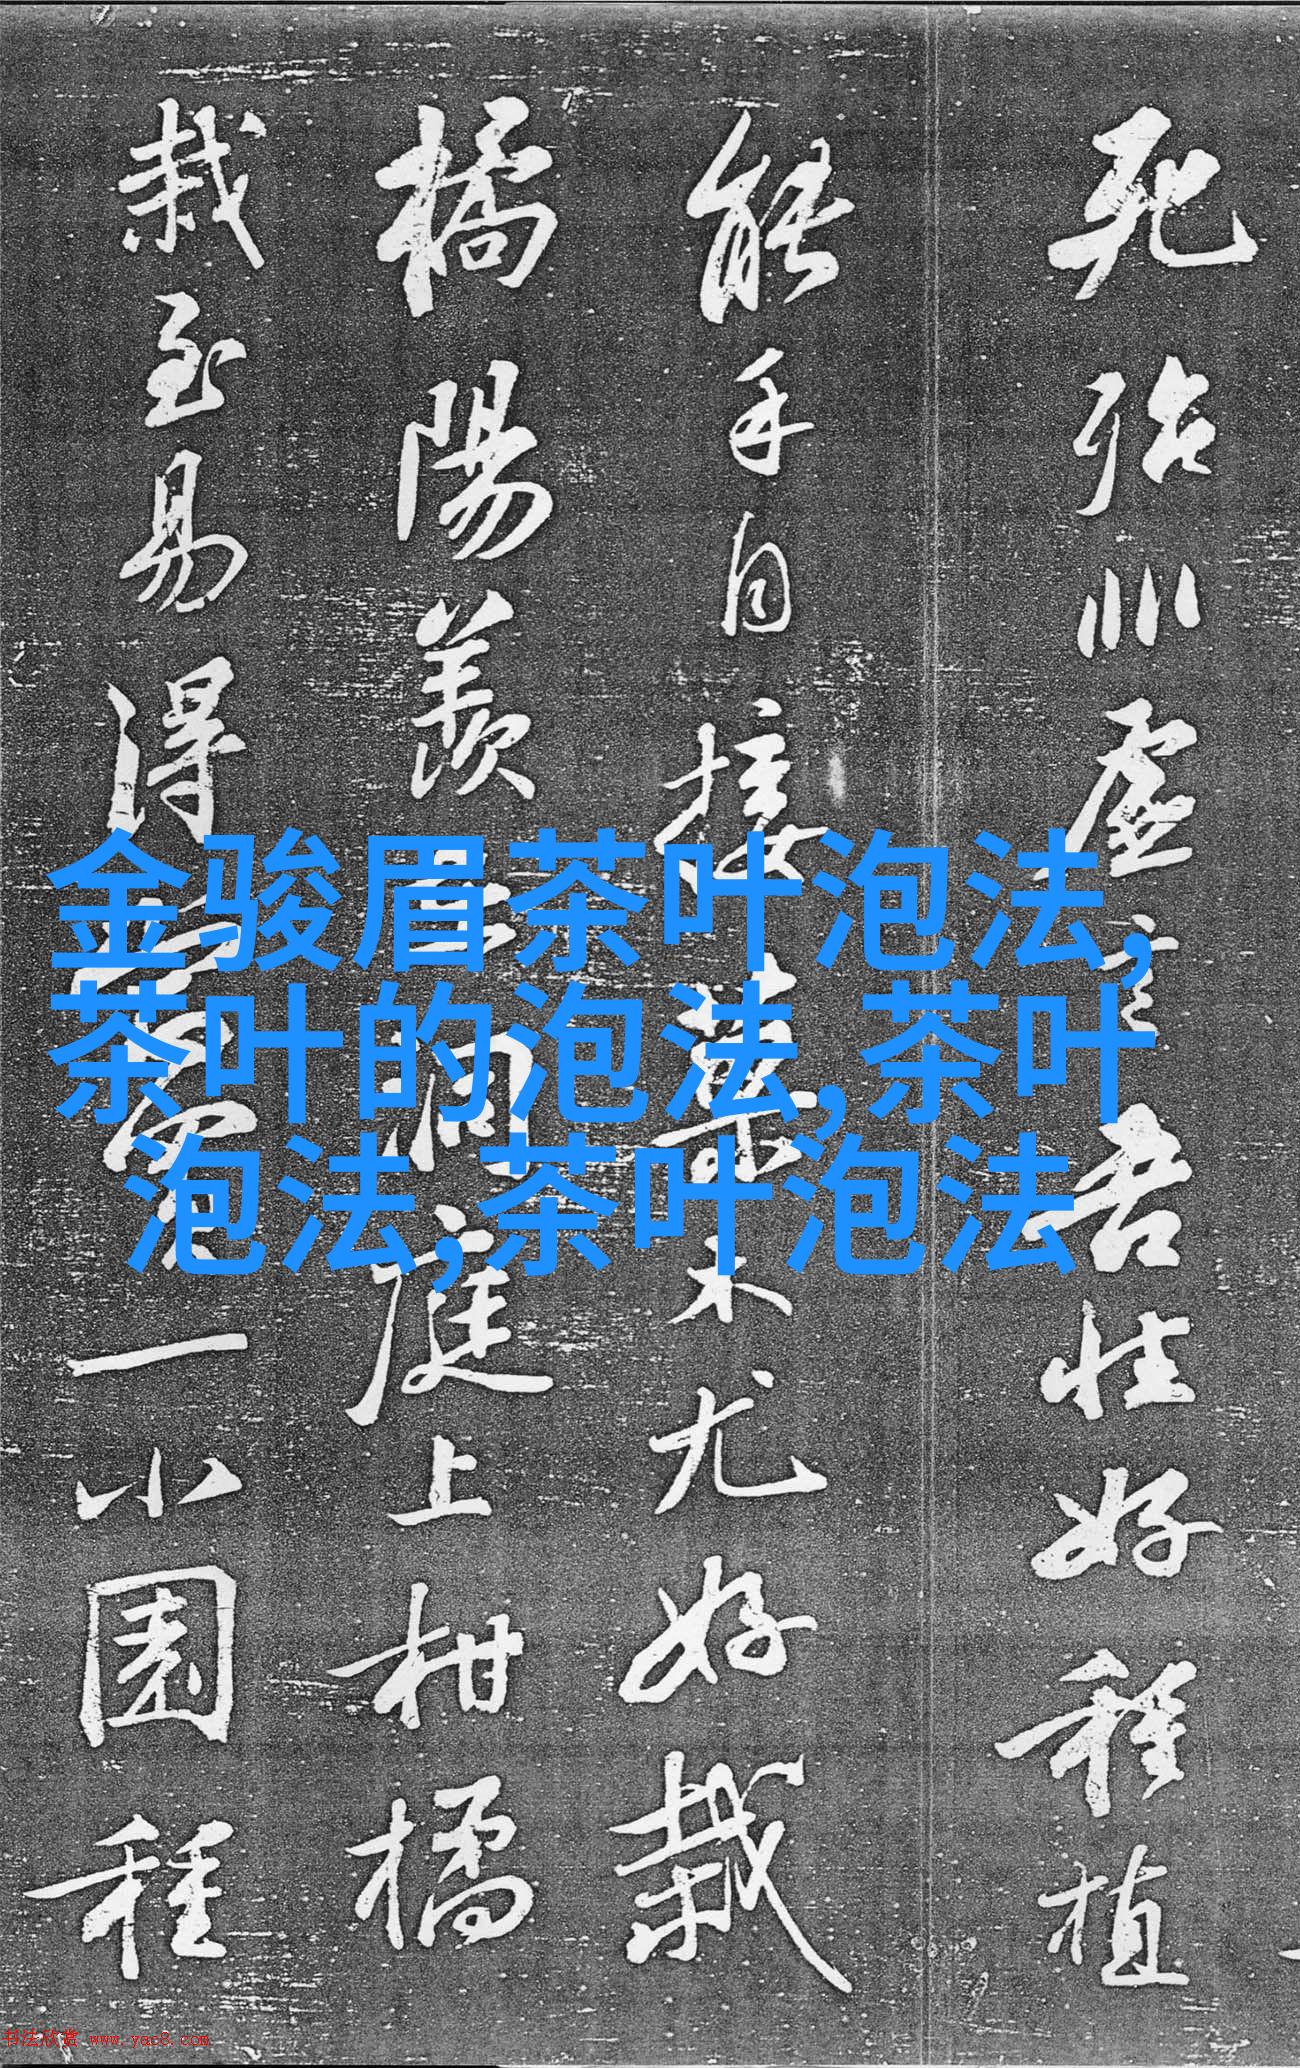 死殆非虛言吾性好種植
能手自接菓木尤好栽
橘陽羨在洞庭上柑橘
栽至易得當買一小園種
金骏眉茶叶泡法,
茶叶的泡法,茶叶
泡法,茶叶泡法
书法欣赏 www.yac8.com